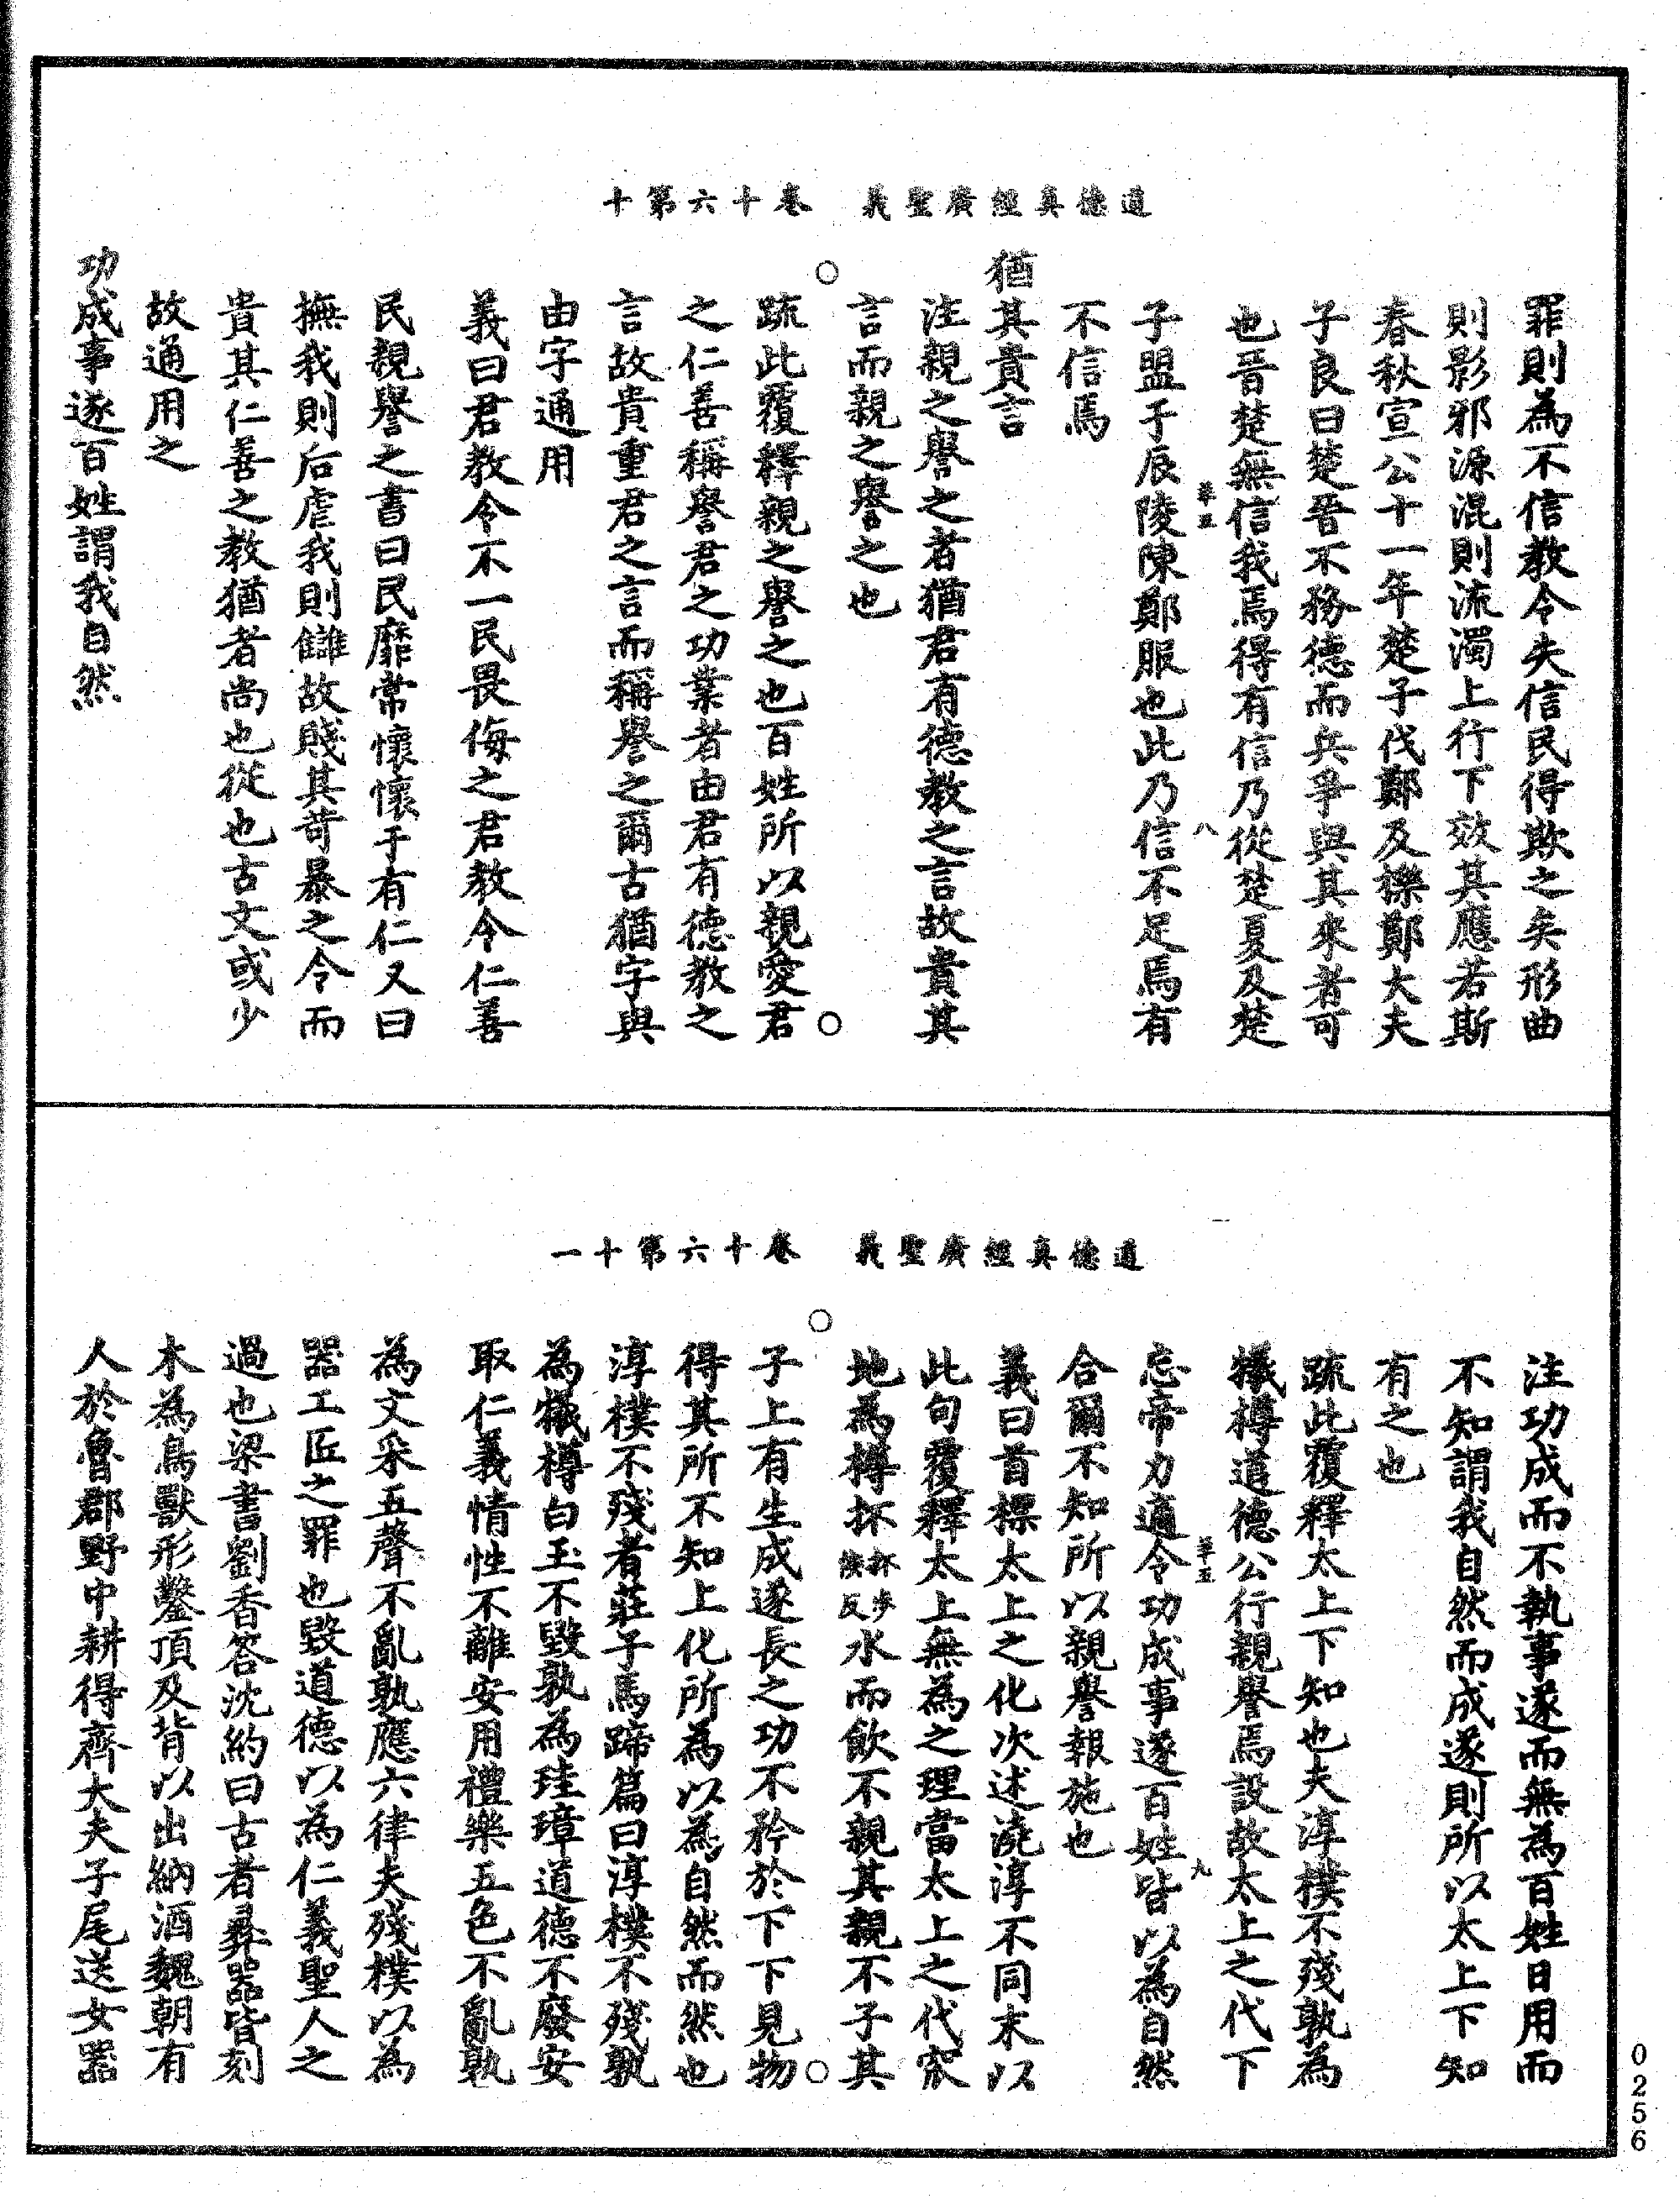 道德真經廣聖義　卷十六第十
罪則為不信教令失信民得欺之矣形曲
則影邪源混則流濁上行下效其應若斯
春秋宣公十一年楚子伐鄭及櫟鄭大夫
子良曰楚晉不務德而兵爭與其來者可
也晉楚無信我焉得有信乃從楚夏及楚
子盟于辰陵陳鄭服也此乃信不足焉有
不信焉
猶其貴言
注親之譽之者猶君有德教之言故貴其
言而親之譽之也
疏此覆釋親之譽之也百姓所以親愛君
之仁善稱譽君之功業者由君有德教之
言故貴重君之言而稱譽之爾古猶字與
由字通用
義曰君教令不一民畏侮之君教令仁善
民親譽之書曰民靡常懷懷于有仁又曰
撫我則后虐我則讎故賤其苛暴之令而
貴其仁善之教猶者尚也從也古文或少
故通用之
功成事遂百姓謂我自然
道德真經廣聖義　卷十六第十一
注功成而不執事遂而無為百姓日用而
不知謂我自然而成遂則所以太上下知
有之也
疏此覆釋太上下知也夫淳樸不殘孰為
犧樽道德公行親譽焉設故太上之代下
忘帝力適令功成事遂百姓皆以為自然
合爾不知所以親譽報施也
義曰首標太上之化次述澆淳不同末以
此句覆釋太上無為之理當太上之代窊
地為樽抔抔步侯反水而飲不親其親不子其
子上有生成遂長之功不矜於下下見物
得其所不知上化所為以為自然而然也
淳樸不殘者莊子馬蹄篇曰淳樸不殘孰
為犧樽白玉不毀孰為珪璋道德不廢安
取仁義情性不離安用禮樂五色不亂孰
為文采五聲不亂孰應六律夫殘樸以為
器工匠之罪也毀道德以為仁義聖人之
過也梁書劉杳答沈約曰古者彝器皆刻
木為鳥獸形鑿頂及背以出納酒魏朝有
人於魯郡野中耕得齊大夫子尾送女器
0256